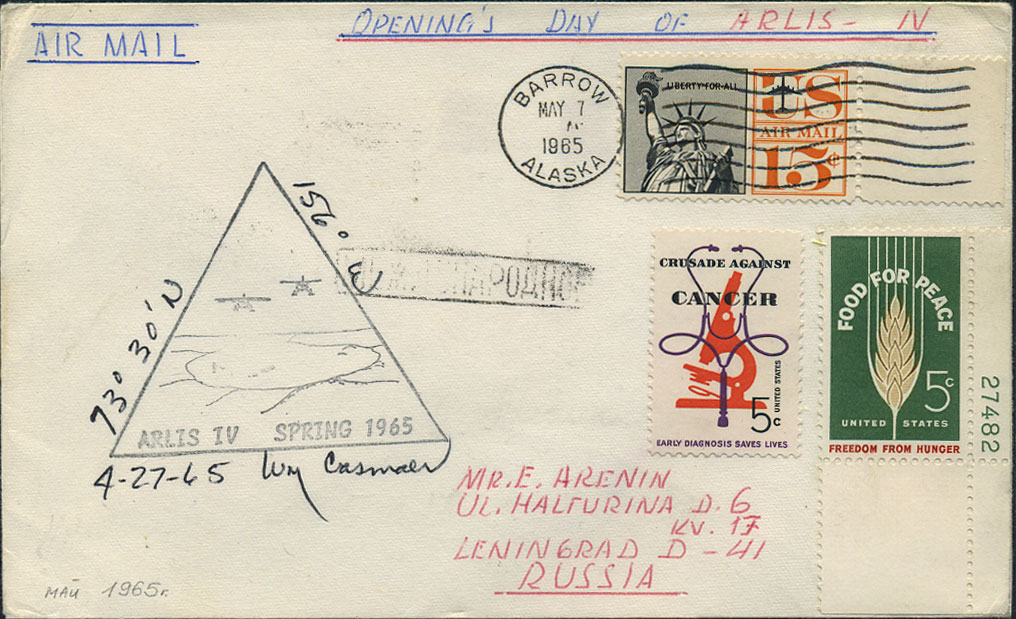 OPENING'S DAY OF ARLIS - IV
AIR MAIL
BARROW
MAY 7
1965
ALASKA
LIBERTY·FOR·ALL
US
AIR MAIL
15¢
156° W
73° 30' N
ARLIS IV SPRING 1965
4-27-65 Wm
CRUSADE AGAINST
CANCER
5c
UNITED STATES
EARLY DIAGNOSIS SAVES LIVES
FOOD FOR PEACE
5c
UNITED STATES
FREEDOM FROM HUNGER
27482
MR. E. ARENIN
UL. HALTURINA D. 6
KV. 17
LENINGRAD D - 41
RUSSIA
май 1965г.